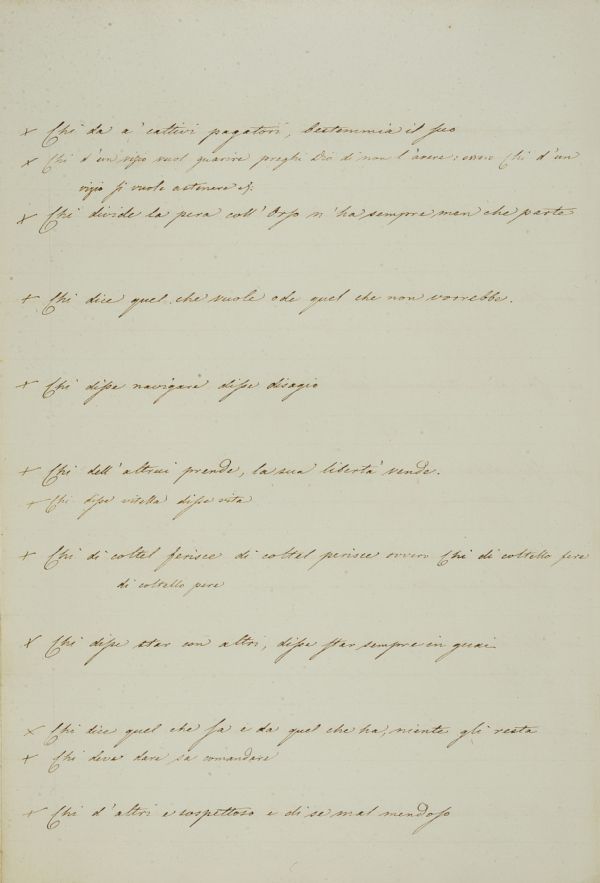 + Chi da a' cattivi pagatori, bestemmia il suo
+ Chi d'un vizio vuol guarire preghi Dio di non l'avere: ovvero Chi d'un
vizio si vuole astenere
+ Chi divide la pera coll' Orso n' ha sempre men che parte
+ Chi dice quel che vuole ode quel che non vorrebbe.
+ Chi disse navigare disse disagio
+ Chi dell' altrui prende, la sua libertà vende.
+ Chi disse vitella disse vita
+ Chi di coltel ferisce di coltel perisce ovvero Chi di coltello fere
di coltello pere
+ Chi disse star con altri, disse star sempre in guai
+ Chi dice quel che sa e da quel che ha, niente gli resta
+ Chi deve dare sa comandare
+ Chi d' altri e sospettoso e di se mal mendoso